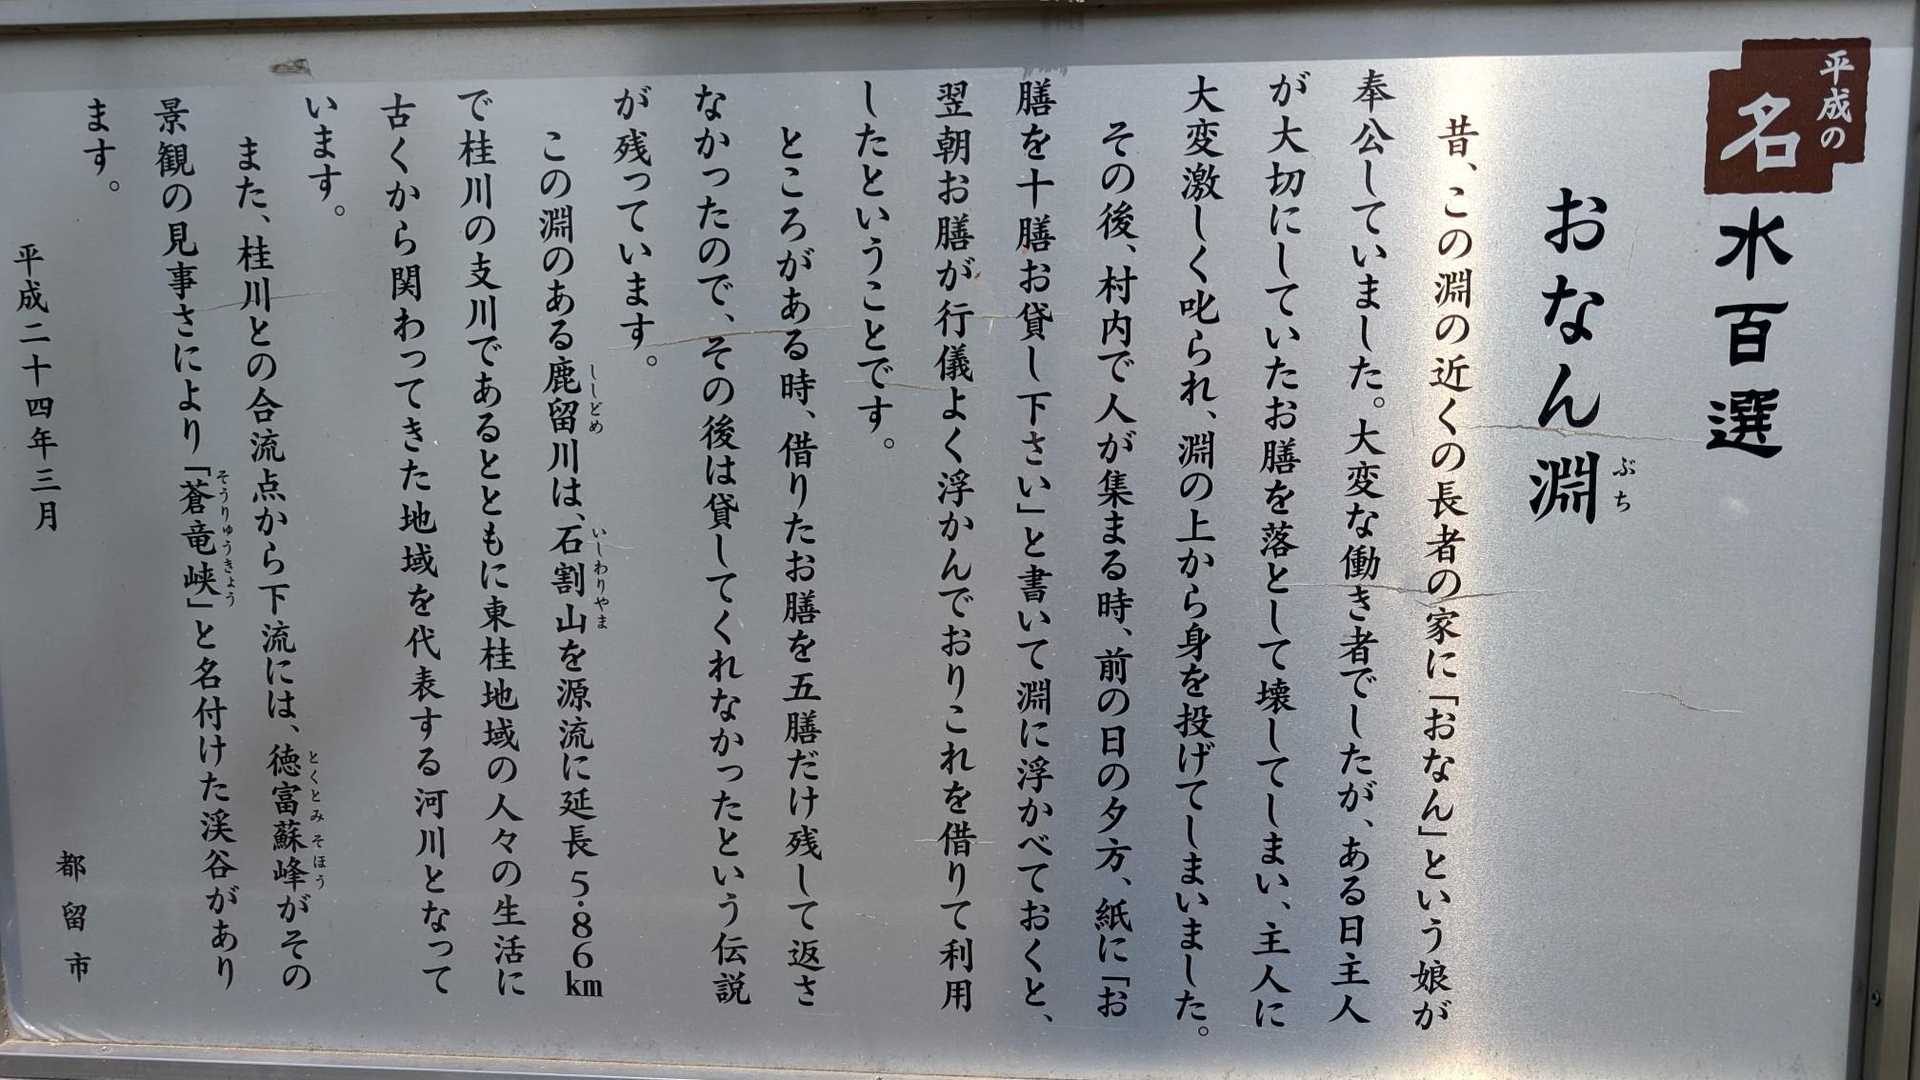 平成の
名水百選
おなん淵
ぶち
昔、この淵の近くの長者の家に「おなん」という娘が
奉公していました。大変な働き者でしたが、ある日主人
が大切にしていたお膳を落として壊してしまい、主人に
大変激しく叱られ、淵の上から身を投げてしまいました。
その後、村内で人が集まる時、前の日の夕方、紙に「お
膳を十膳お貸し下さい」と書いて淵に浮かべておくと、
翌朝お膳が行儀よく浮かんでおりこれを借りて利用
したということです。
ところがある時、借りたお膳を五膳だけ残して返さ
なかったので、その後は貸してくれなかったという伝説
が残っています。
この淵のある鹿留川は、石割山を源流に延長5.86km
ししどめ
いしわりやま
で桂川の支川であるとともに東桂地域の人々の生活に
古くから関わってきた地域を代表する河川となって
います。
また、桂川との合流点から下流には、徳富蘇峰がその
とくとみ そほう
景観の見事さにより「蒼竜峡」と名付けた渓谷があり
そうりゅうきょう
ます。
平成二十四年三月
都留市